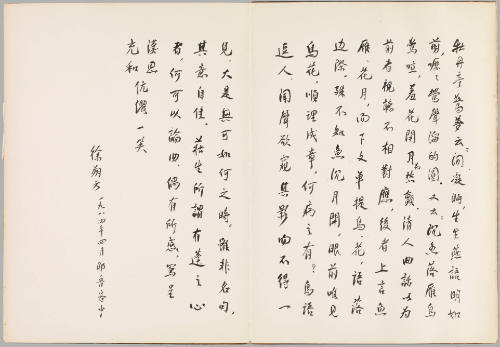 牡丹亭驚夢云：閒凝眄，生生燕語明如
翦，嚦嚦鶯聲溜的圓。又云：沉魚落雁鳥
驚喧，羞花閉月花愁顫。清人曲話以為
前者視聽不相對應，後者上言魚
雁、花月，而下文單提鳥、花，語落
邊際。殊不知魚沉月閉，眼前唯見
鳥花，順理成章，何病之有？鳥語
逗人，聞聲欲窺其影而不得一
見，大是無可如何之時。雖非名句，
其意自佳。莊生所謂有蓬之心
者，何可以論曲。偶有所感，寫呈
漢思
充和 伉儷一笑
徐朔方 一九八四年四月耶魯客中